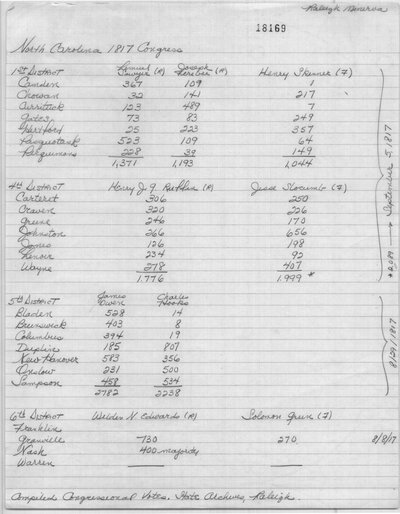 Raleigh Minerva
18169
North Carolina 1817 Congress
1st District Lemuel Sawyer (R) Joseph Ferebee (R) Henry Skinner (F)
Camden 367 109 1
Chowan 32 141 217
Currituck 123 489 7
Gates 73 83 249
Hertford 25 223 357
Pasquotank 523 109 64
Perquimans 228 39 149
1,371 1,193 1,044
4th District Henry J. G. Ruffin (R) Jesse Slocumb (F)
Carteret 306 250
Craven 320 226
Greene 246 170
Johnston 266 656
Jones 126 198
Lenoir 234 92
Wayne 278 407
1.776 1.999 *
*2,089 → September 5, 1817
5th District James Owen Charles Hooks
Bladen 528 14
Brunswick 403 8
Columbus 394 19
Duplin 185 807
New Hanover 583 356
Onslow 231 500
Sampson 458 534
2782 2238
8/21/1817
6th District Weldon N. Edwards (R) Solomon Green (F)
Franklin
Granville 730 270 8/8/17
Nash 400 majority
Warren
Compiled Congressional Votes. State Archives, Raleigh.